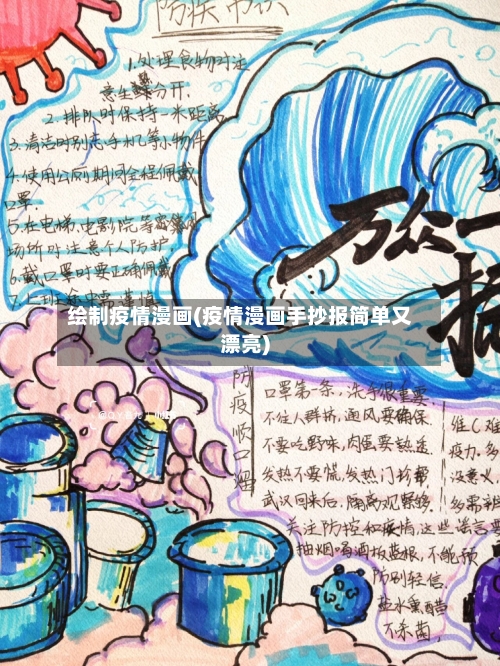 防疾常识
1.处理食物时注
意生熟分开.
2.排队时保持一米距离
3.清洁时别忘手机等小物件
4.使用公厕期间全程佩戴
口罩.
5.在电梯、电影院等密集
场所时注意个人防护
6.戴口罩时要正确佩戴
7.上班
万众一
绘制疫情漫画(疫情漫画手抄报简单又
漂亮)
防疫顺口溜
口罩第一条,洗手很重要.
不往人群挤,通风要确保.
不要吃野味,肉蛋要熟透.
发热不要慌,发热门诊帮
武汉回来后,隔离观察够.
关注防控和疫情,这些谣言
抽烟喝酒板蓝根,不能预
防别轻信.
盐水熏醋
不杀菌,
维C难
疫力.多
没意义
多需